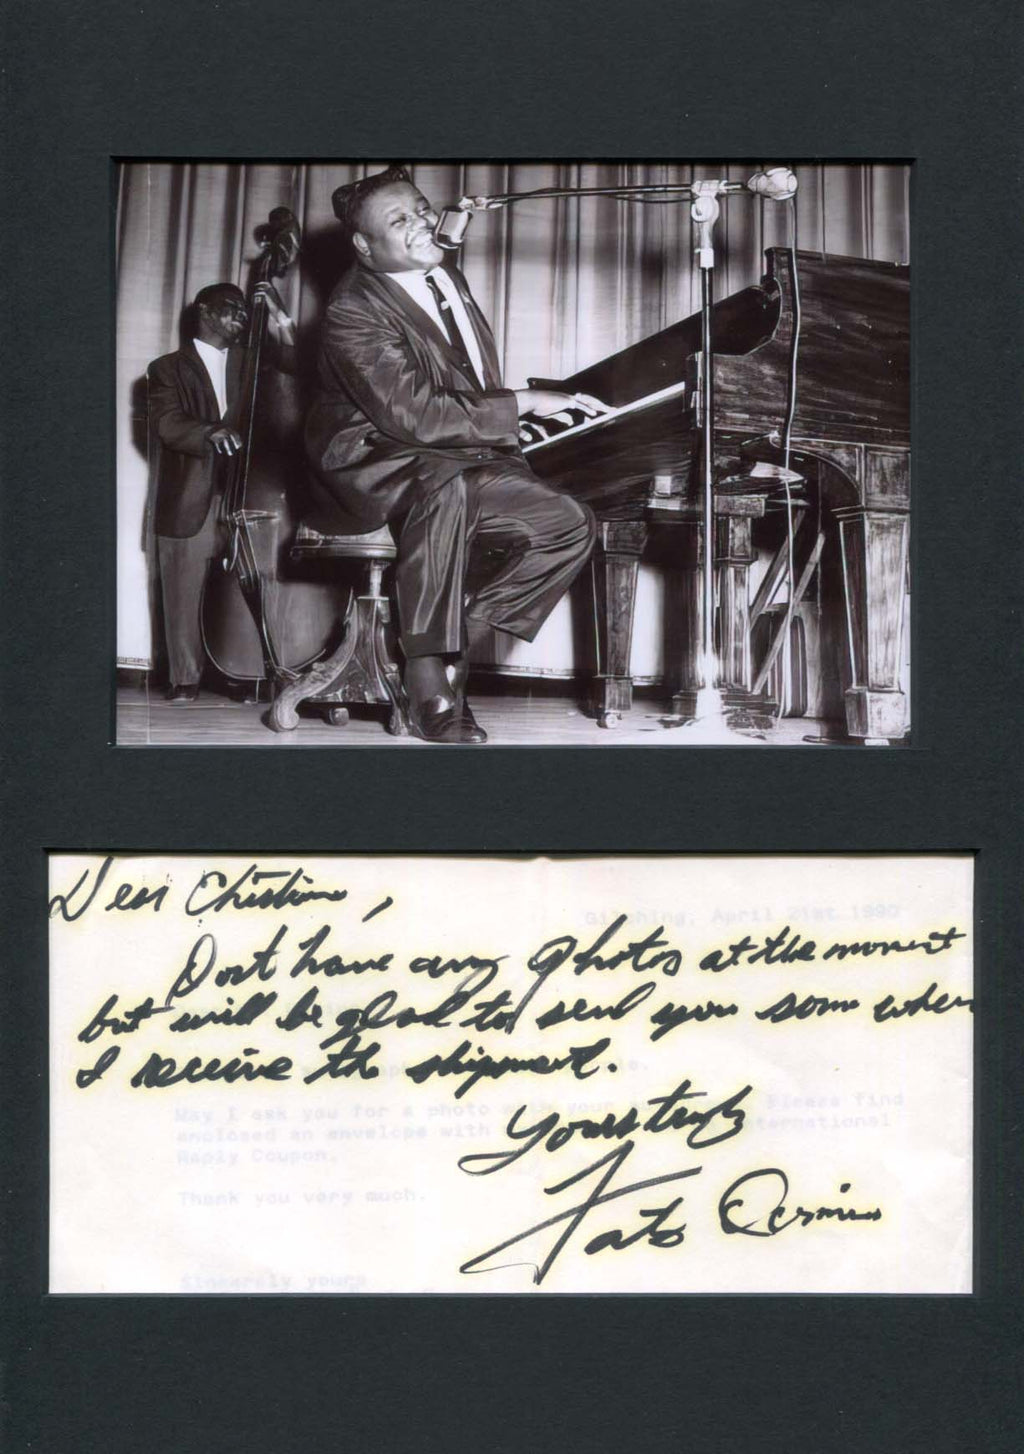 Dear Christine,
Gilching, April 21st 1990
Dont have any photos at the moment
but will be glad to send you some when
I receive the shipment.
May I ask you for a photo with your Please find
enclosed an envelope with International
Reply Coupon.
Yours truly
Thank you very much.
Fats Domino
Sincerely yours